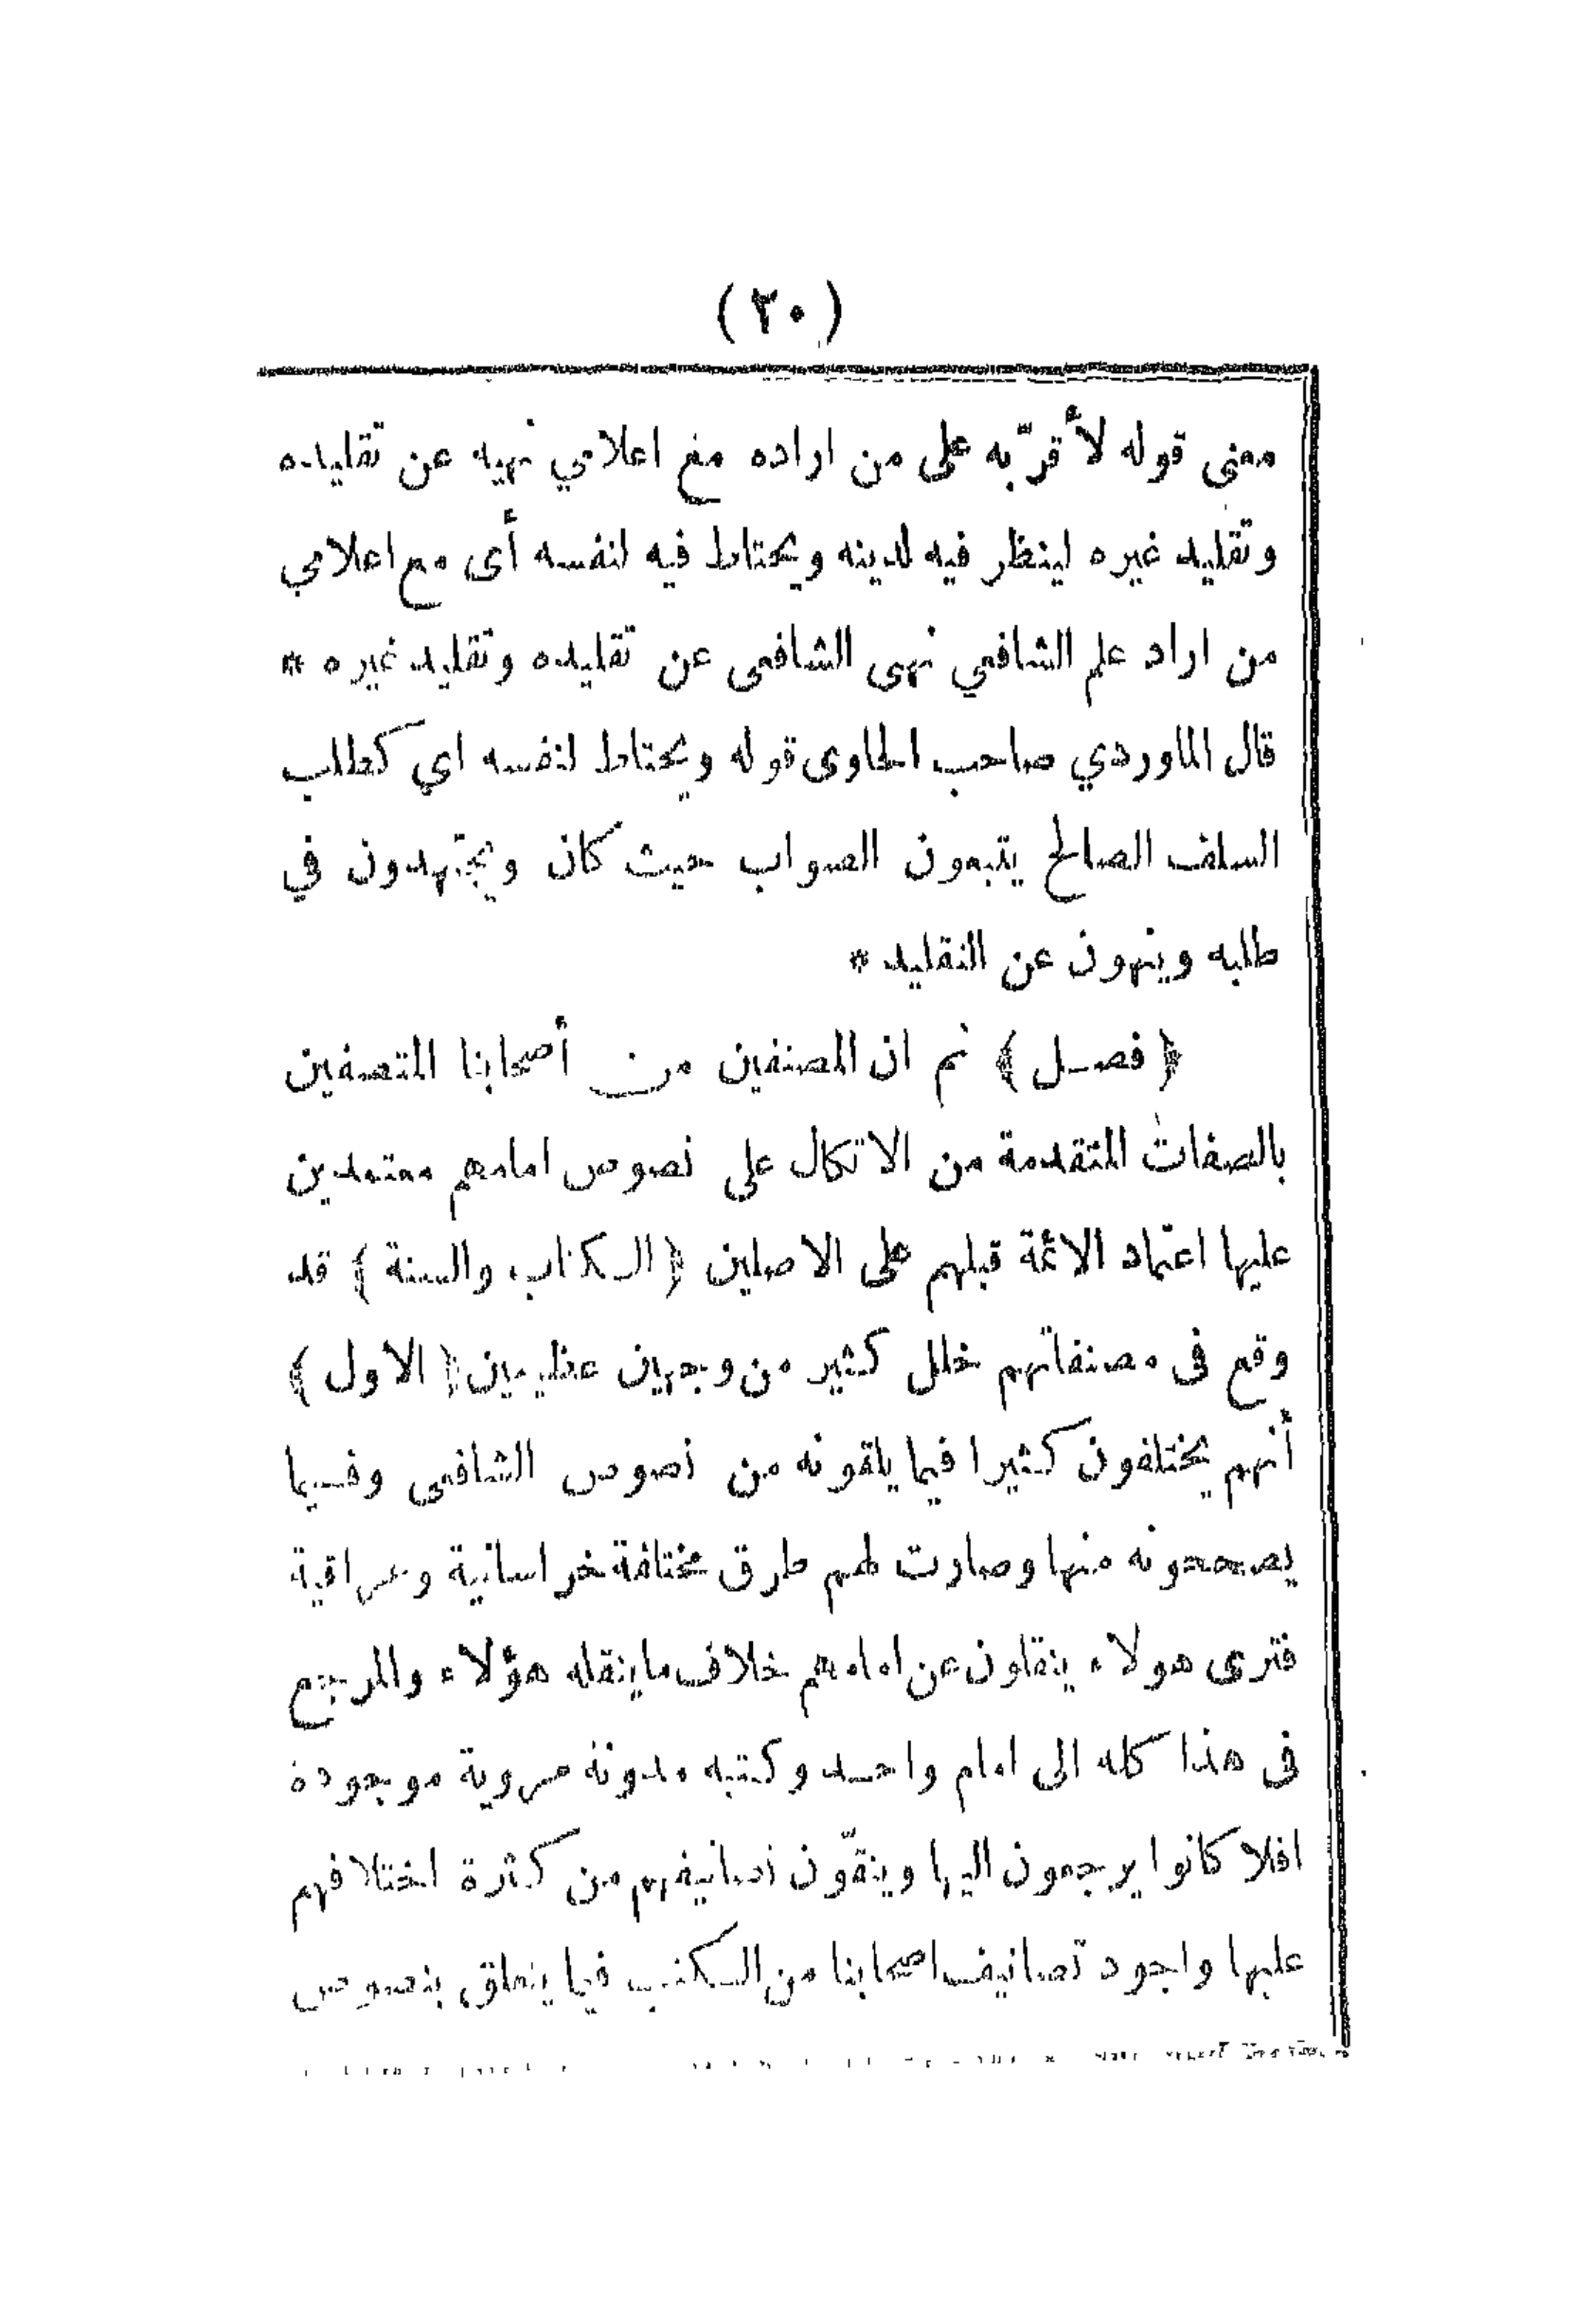 (٢٠)
معنى قوله لأقرّبه على من اراده مع اعلامي نهيه عن تقليده
وتقليد غيره لينظر فيه لدينه ويحتاط فيه لنفسه أى مع اعلامي
من اراد علم الشافعي نهى الشافعى عن تقليده وتقليد غيره *
قال الماوردي صاحب الحاوى قوله ويحتاط لنفسه اي كطلب
السلف الصالح يتبعون الصواب حيث كان ويجتهدون في
طلبه وينهون عن التقليد *
﴿ فصل ﴾ ثم ان المصنفين من أصحابنا المتصفين
بالصفات المتقدمة من الاتكال على نصوص امامهم معتمدين
عليها اعتماد الائمة قبلهم على الاصلين ﴿ الكتاب والسنة ﴾ قد
وقع فى مصنفاتهم خلل كثير من وجهين عظيمين ﴿ الاول ﴾
أنهم يختلفون كثيرا فيما يلقونه من نصوص الشافعى وفيما
يصححونه منها وصارت لهم طرق مختلفة خراسانية وعراقية
فترى هولاء ينقلون عن امامهم خلاف ما ينقله هؤلاء والمرجع
فى هذا كله الى امام واحد وكتبه مدونة مروية موجودة
افلا كانوا يرجعون اليها وينقّون تصانيفهم من كثرة اختلافهم
عليها واجود تصانيف اصحابنا من الكتب فيما يتعلق بنصوص